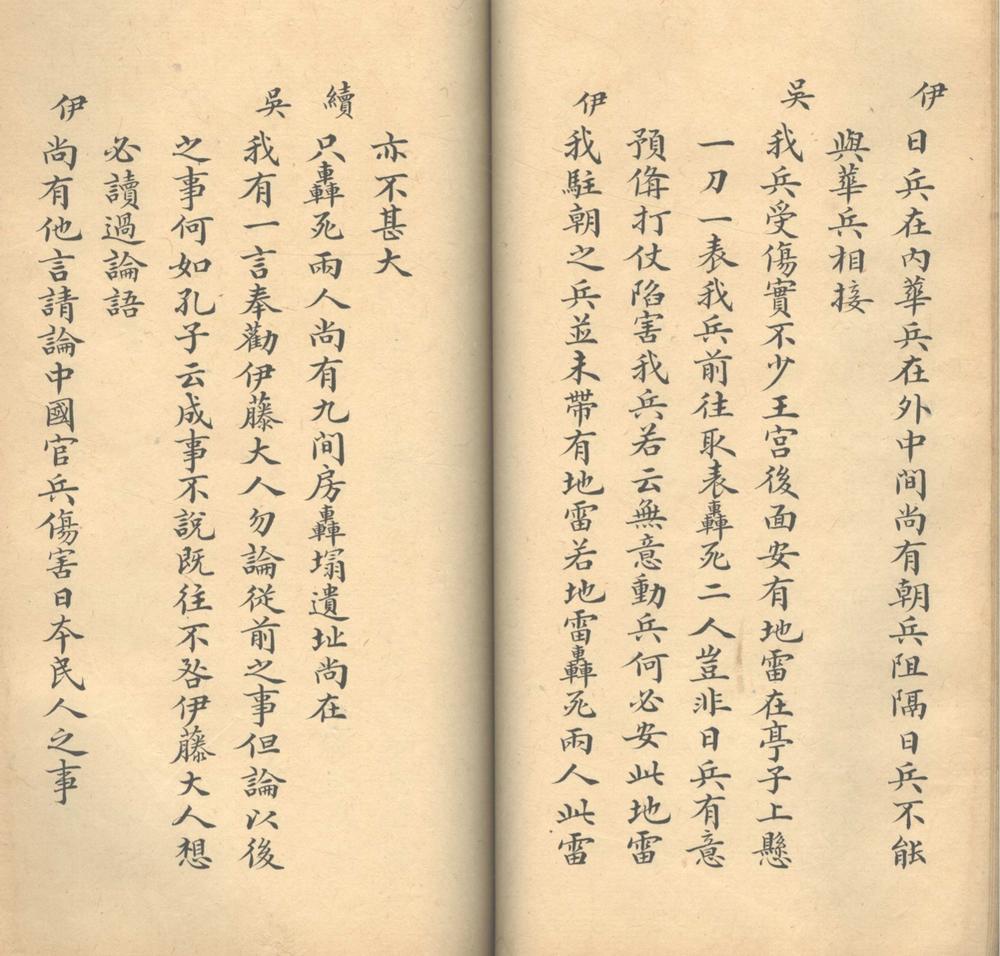 伊 日兵在內華兵在外中間尚有朝兵阻隔日兵不能
與華兵相接
吳 我兵受傷實不少王宮後面安有地雷在亭子上懸
一刀一表我兵前往取表轟死二人豈非日兵有意
預俻打仗陷害我兵若云無意動兵何必安此地雷
伊 我駐朝之兵並未帶有地雷若地雷轟死兩人此雷
亦不甚大
續 只轟死兩人尚有九間房轟塌遺址尚在
吳 我有一言奉勸伊藤大人勿論從前之事但論以後
之事何如孔子云成事不說既往不咎伊藤大人想
必讀過論語
伊 尚有他言請論中國官兵傷害日本民人之事